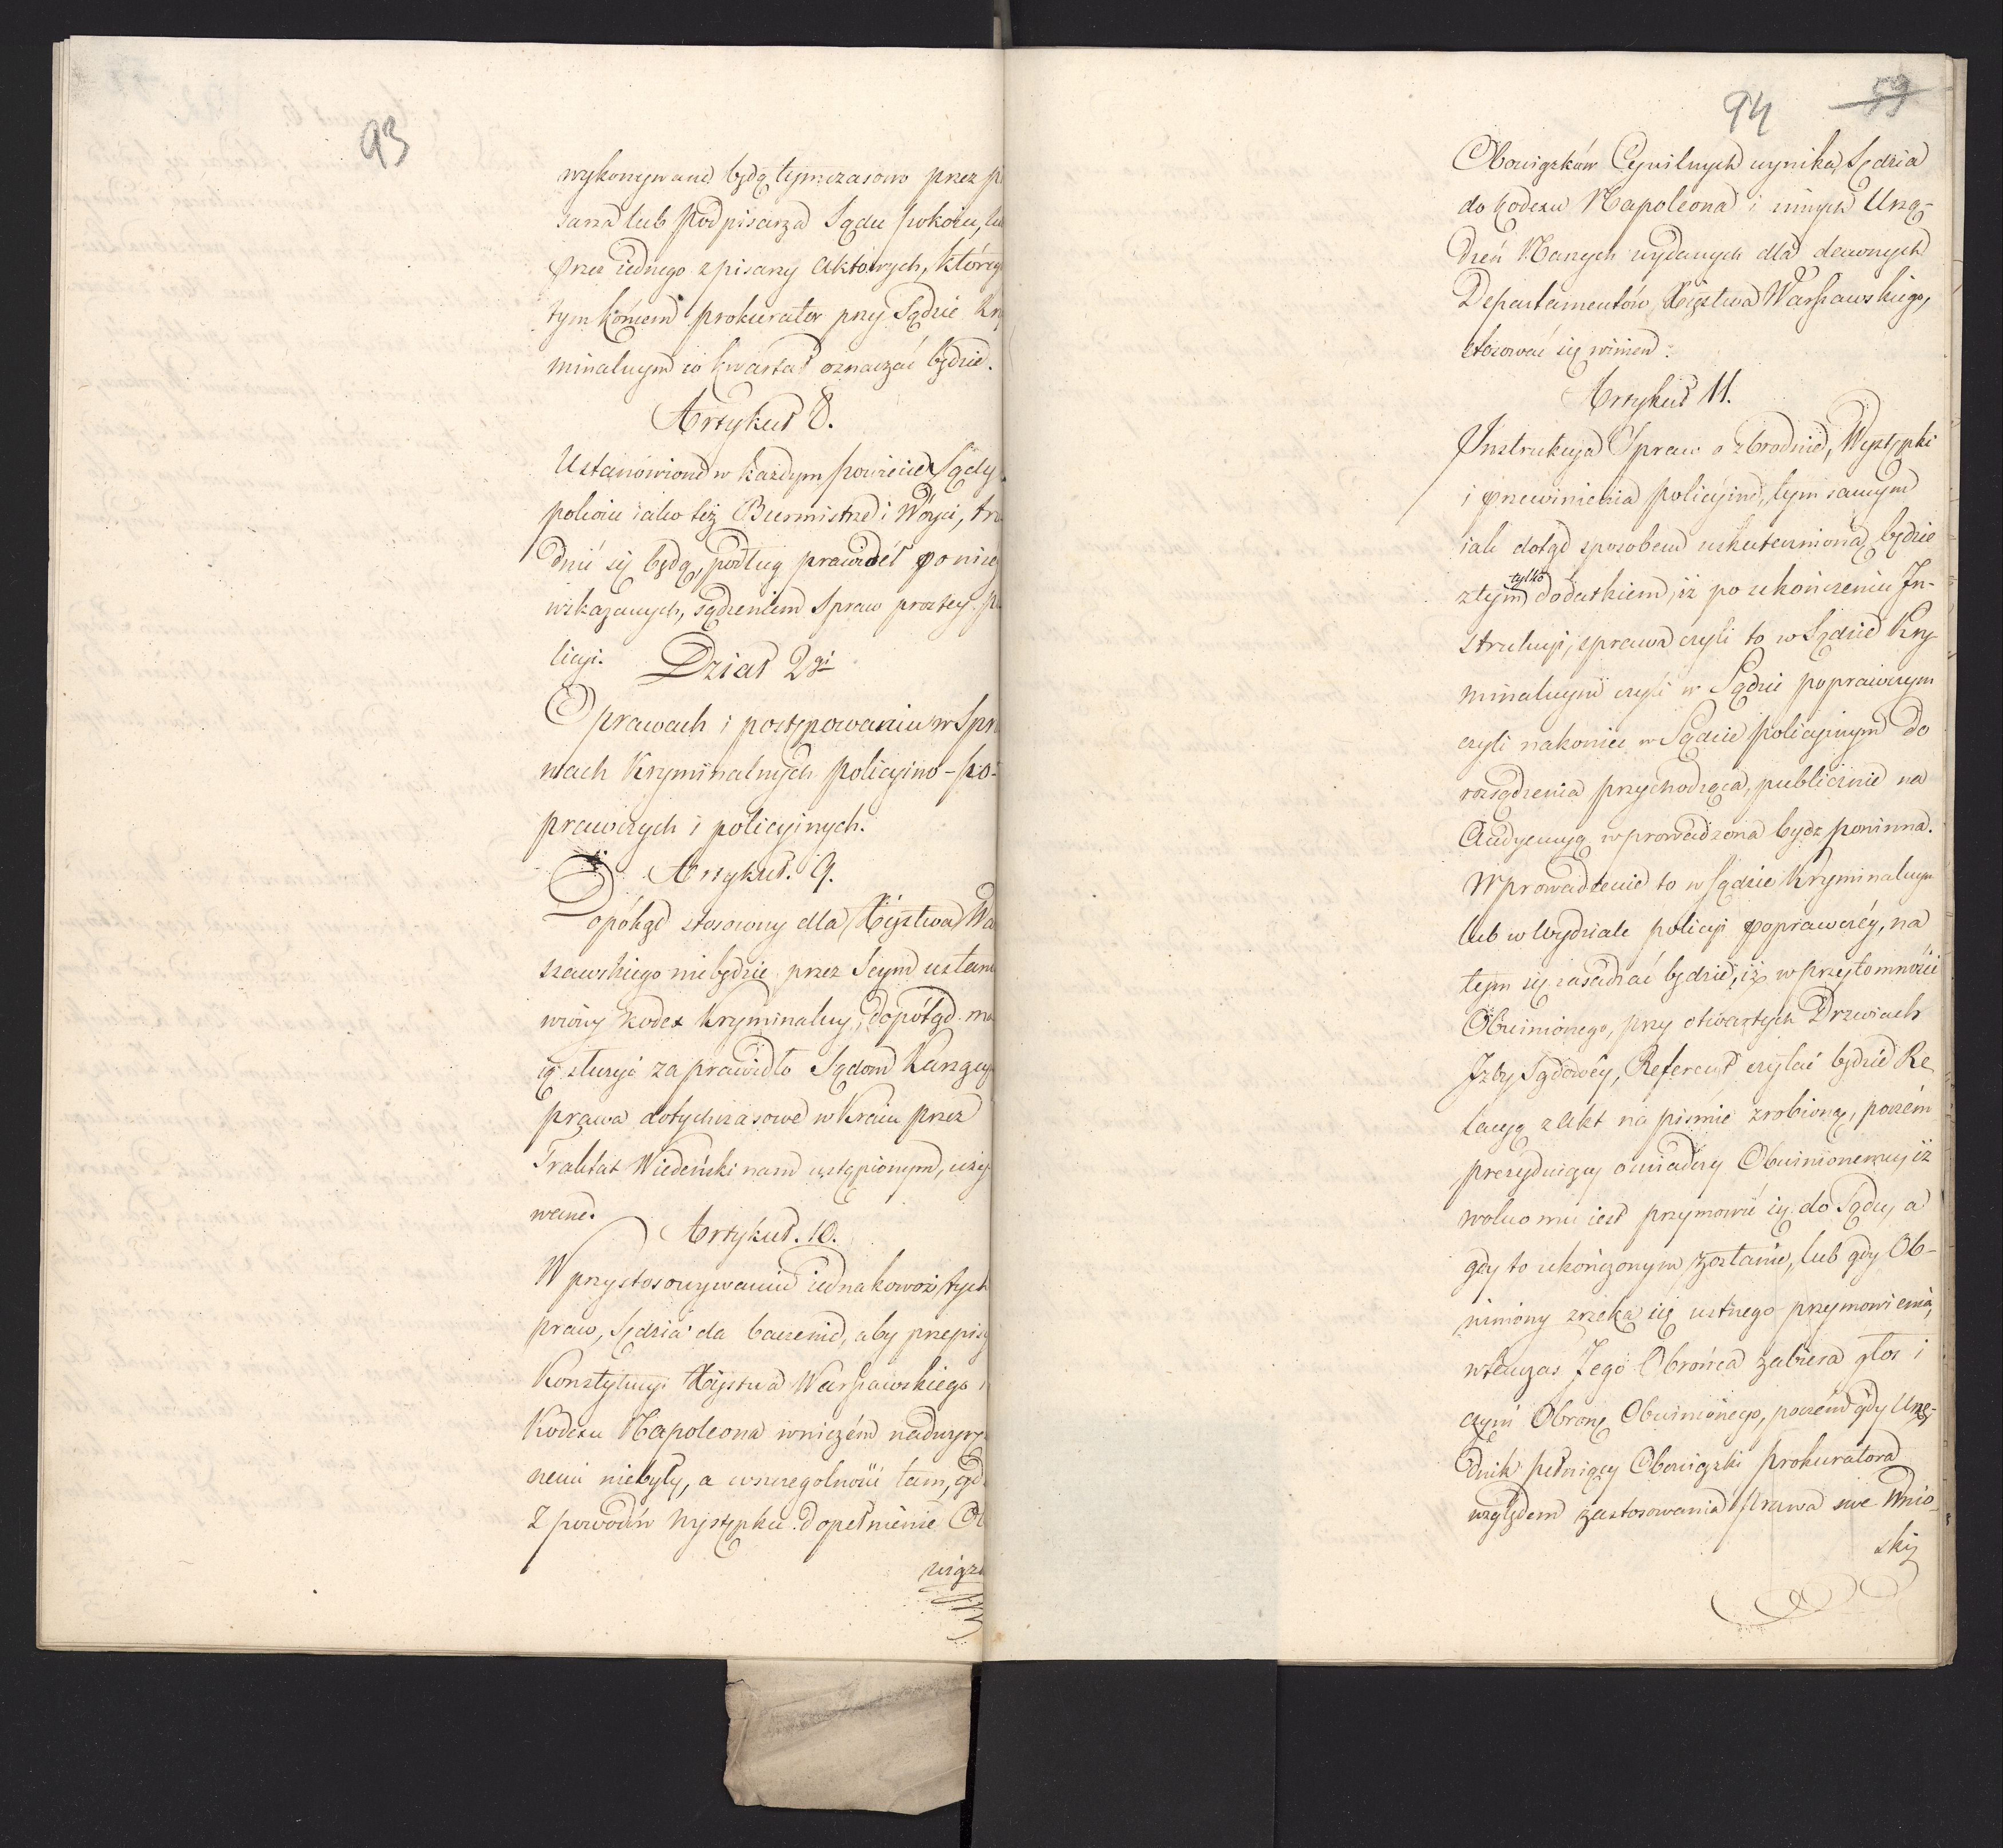 93
wykonywane będą tymczasowo przez pi
sarza lub Podpisarza Sądu pokoiu, lu
przez iednego z pisarzy Aktowych, któreg
tym końcem prokurator przy Sądzie Kry
minalnym co kwartał oznaczać będzie.
Artykuł 8.
Ustanowione w każdym powiecie Sądy
pokoiu iako też Burmistrze i Wóyci, tru
dnić się będą, podług prawideł poniżey
wskazanych, sądzeniem Spraw prostey po
licyi.
Dział 2gi
O prawach i postępowaniu w Spra
wach Kryminalnych policyino-po-
prawczych i policyinych.
Artykuł. 9.
Dopókąd stosowny dla Xięstwa Wa
szawskiego nie będzie przez Seym ustano
wiony Kodex Kryminalny, dopótąd ma
ią służyć za prawidło Sądom Karzący
prawa dotychczasowe w Kraiu przez
Traktat Wiedeński nam ustąpionym, uży
wane.
Artykuł. 10.
W przystosowywaniu iednakowoż tych
praw, Sędzia da baczenie, aby przepisy
Konstytucyi Xięstwa Warszawskiego i
Kodexu Napoleona w niczém nadwyrę
żeni niebyły, a wszczególności tam, gd
z powodów Występku dopełnienie Ob
wiązk
94 59
Obowiązków Cywilnych wynika, Sędzia
do Kodexu Napoleona i innych Urzą-
dzeń Naszych wydanych dla dawnych
Departamentów Xięstwa Warszawskiego,
stosować się winien.
Artykuł 11.
Instrukcya Spraw o zbrodnie, Występki
i przewinienia policyine, tym samym
iak dotąd sposobem uskuteczniona będzie
z tym tylko dodatkiem, iż po ukończeniu In-
strukcyi, sprawa czyli to w Sądzie Kry
minalnym czyli w Sądzie poprawczym
czyli nakoniec w Sądzie policyinym do
rozsądzenia przychodząca, publicznie na
Audyencyą wprowadzona bydz powinna.
Wprowadzenie to w Sądzie Kryminalnym
lub w Wydziale policyi poprawczéy, na
tym się zasadzać będzie, iż w przytomności
Obwinionego, przy otwartych Drzwiach
Izby Sądowéy, Referent czytać będzie Re
lacyą z Akt na piśmie zrobioną, poczém
prezyduiący oświadczy Obwinionemu, iż
wolno mu iest przymowić się do Sądu, a
gdy to ukończonym zostanie, lub gdy Ob-
winiony zrzeka się ustnego przymowienia,
wtenczas Jego Obrońca zabiera głos i
czyni Obronę Obwinionego, poczém gdy Urzę-
dnik pełniący Obowiązki prokuratora
względem zastosowania Prawa swe Wnio-
ski